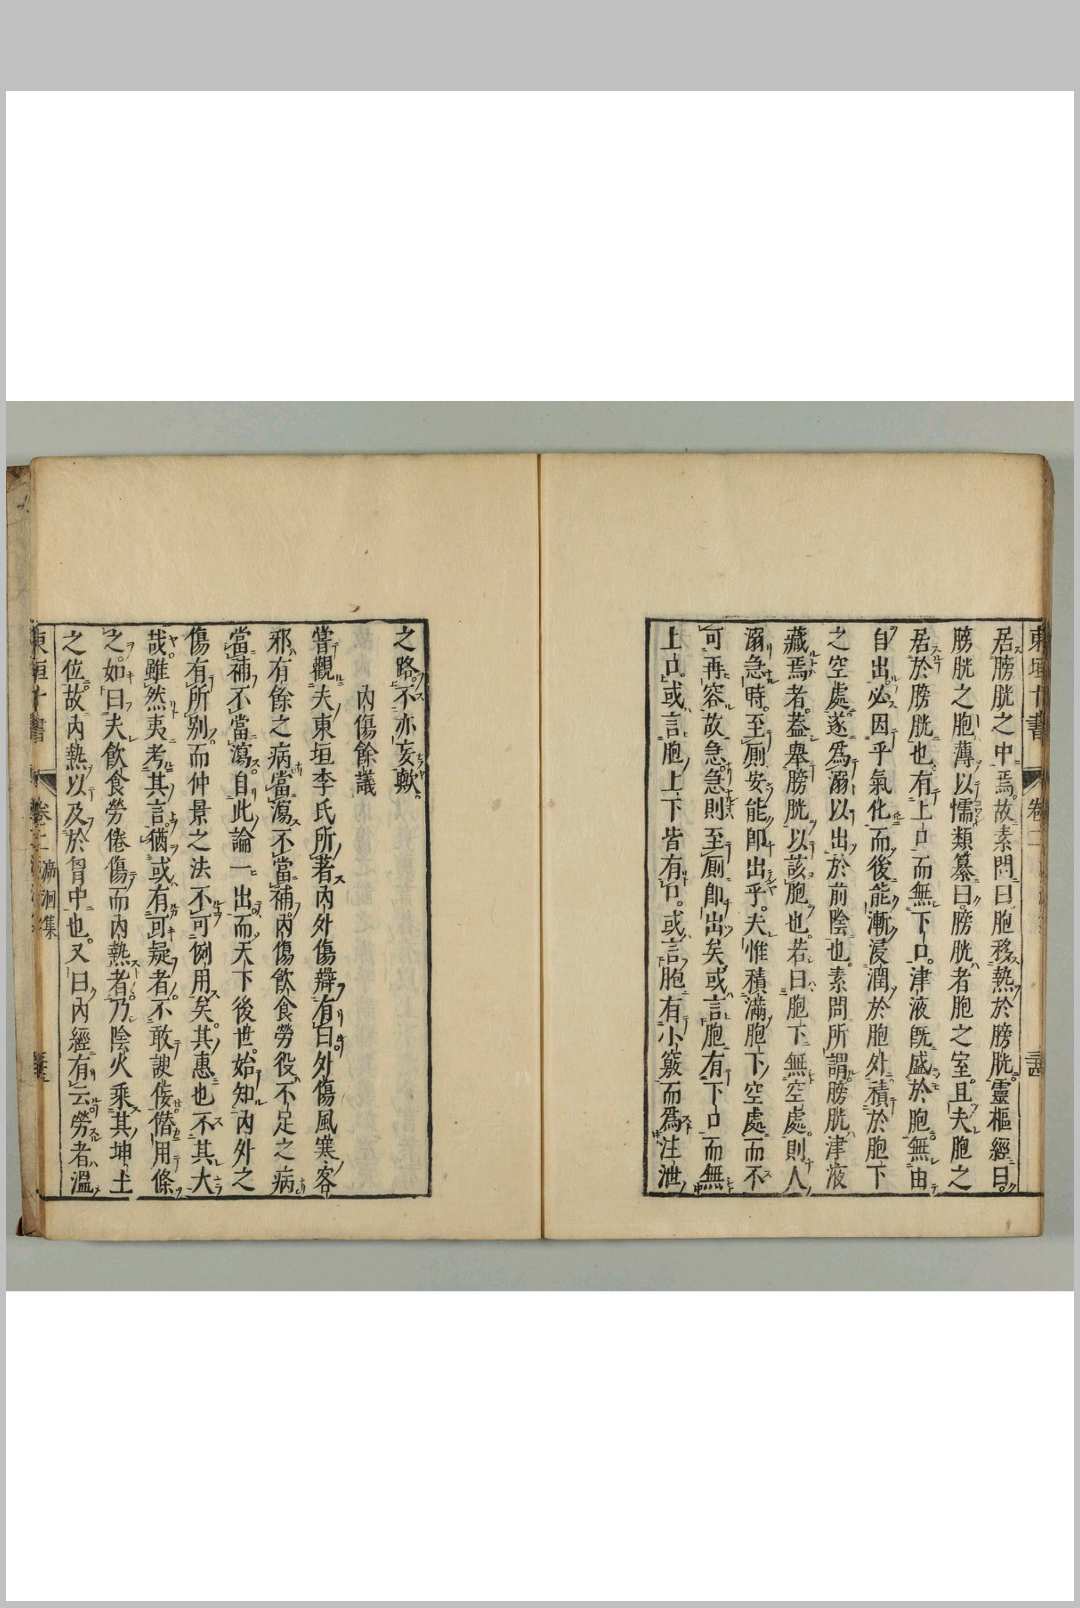 東垣十書 卷二
居膀胱之中焉故素問曰胞移熱於膀胱靈樞經曰
膀胱之胞薄以懦類纂曰膀胱者胞之室且夫胞之
居於膀胱也有上口而無下口津液既盛於胞無由
自出必因乎氣化而後能漸浸潤於胞外積於胞下
之空處遂爲溺以出於前陰也素問所謂膀胱津液
藏焉者蓋舉膀胱以該胞也若曰胞下無空處則人
溺急時至厠安能卽出乎夫惟積滿胞下空處而不
可再容故急急則至厠卽出矣或言胞有下口而無
上口或言胞上下皆有口或言胞有小竅而爲注泄
之路不亦妄歟
內傷餘議
嘗觀夫東垣李氏所著內外傷辯有曰外傷風寒客
邪有餘之病當瀉不當補內傷飲食勞役不足之病
當補不當瀉自此論一出而天下後世始知內外之
傷有所別而仲景之法不可例用矣其惠也不其大
哉雖然夷考其言猶或有可疑者不敢諛佞僭用條
之如曰夫飲食勞倦傷而內熱者乃陰火乘其坤土
之位故內熱以及於胷中也又曰內經有云勞者溫
東垣十書 卷二 泝洄集